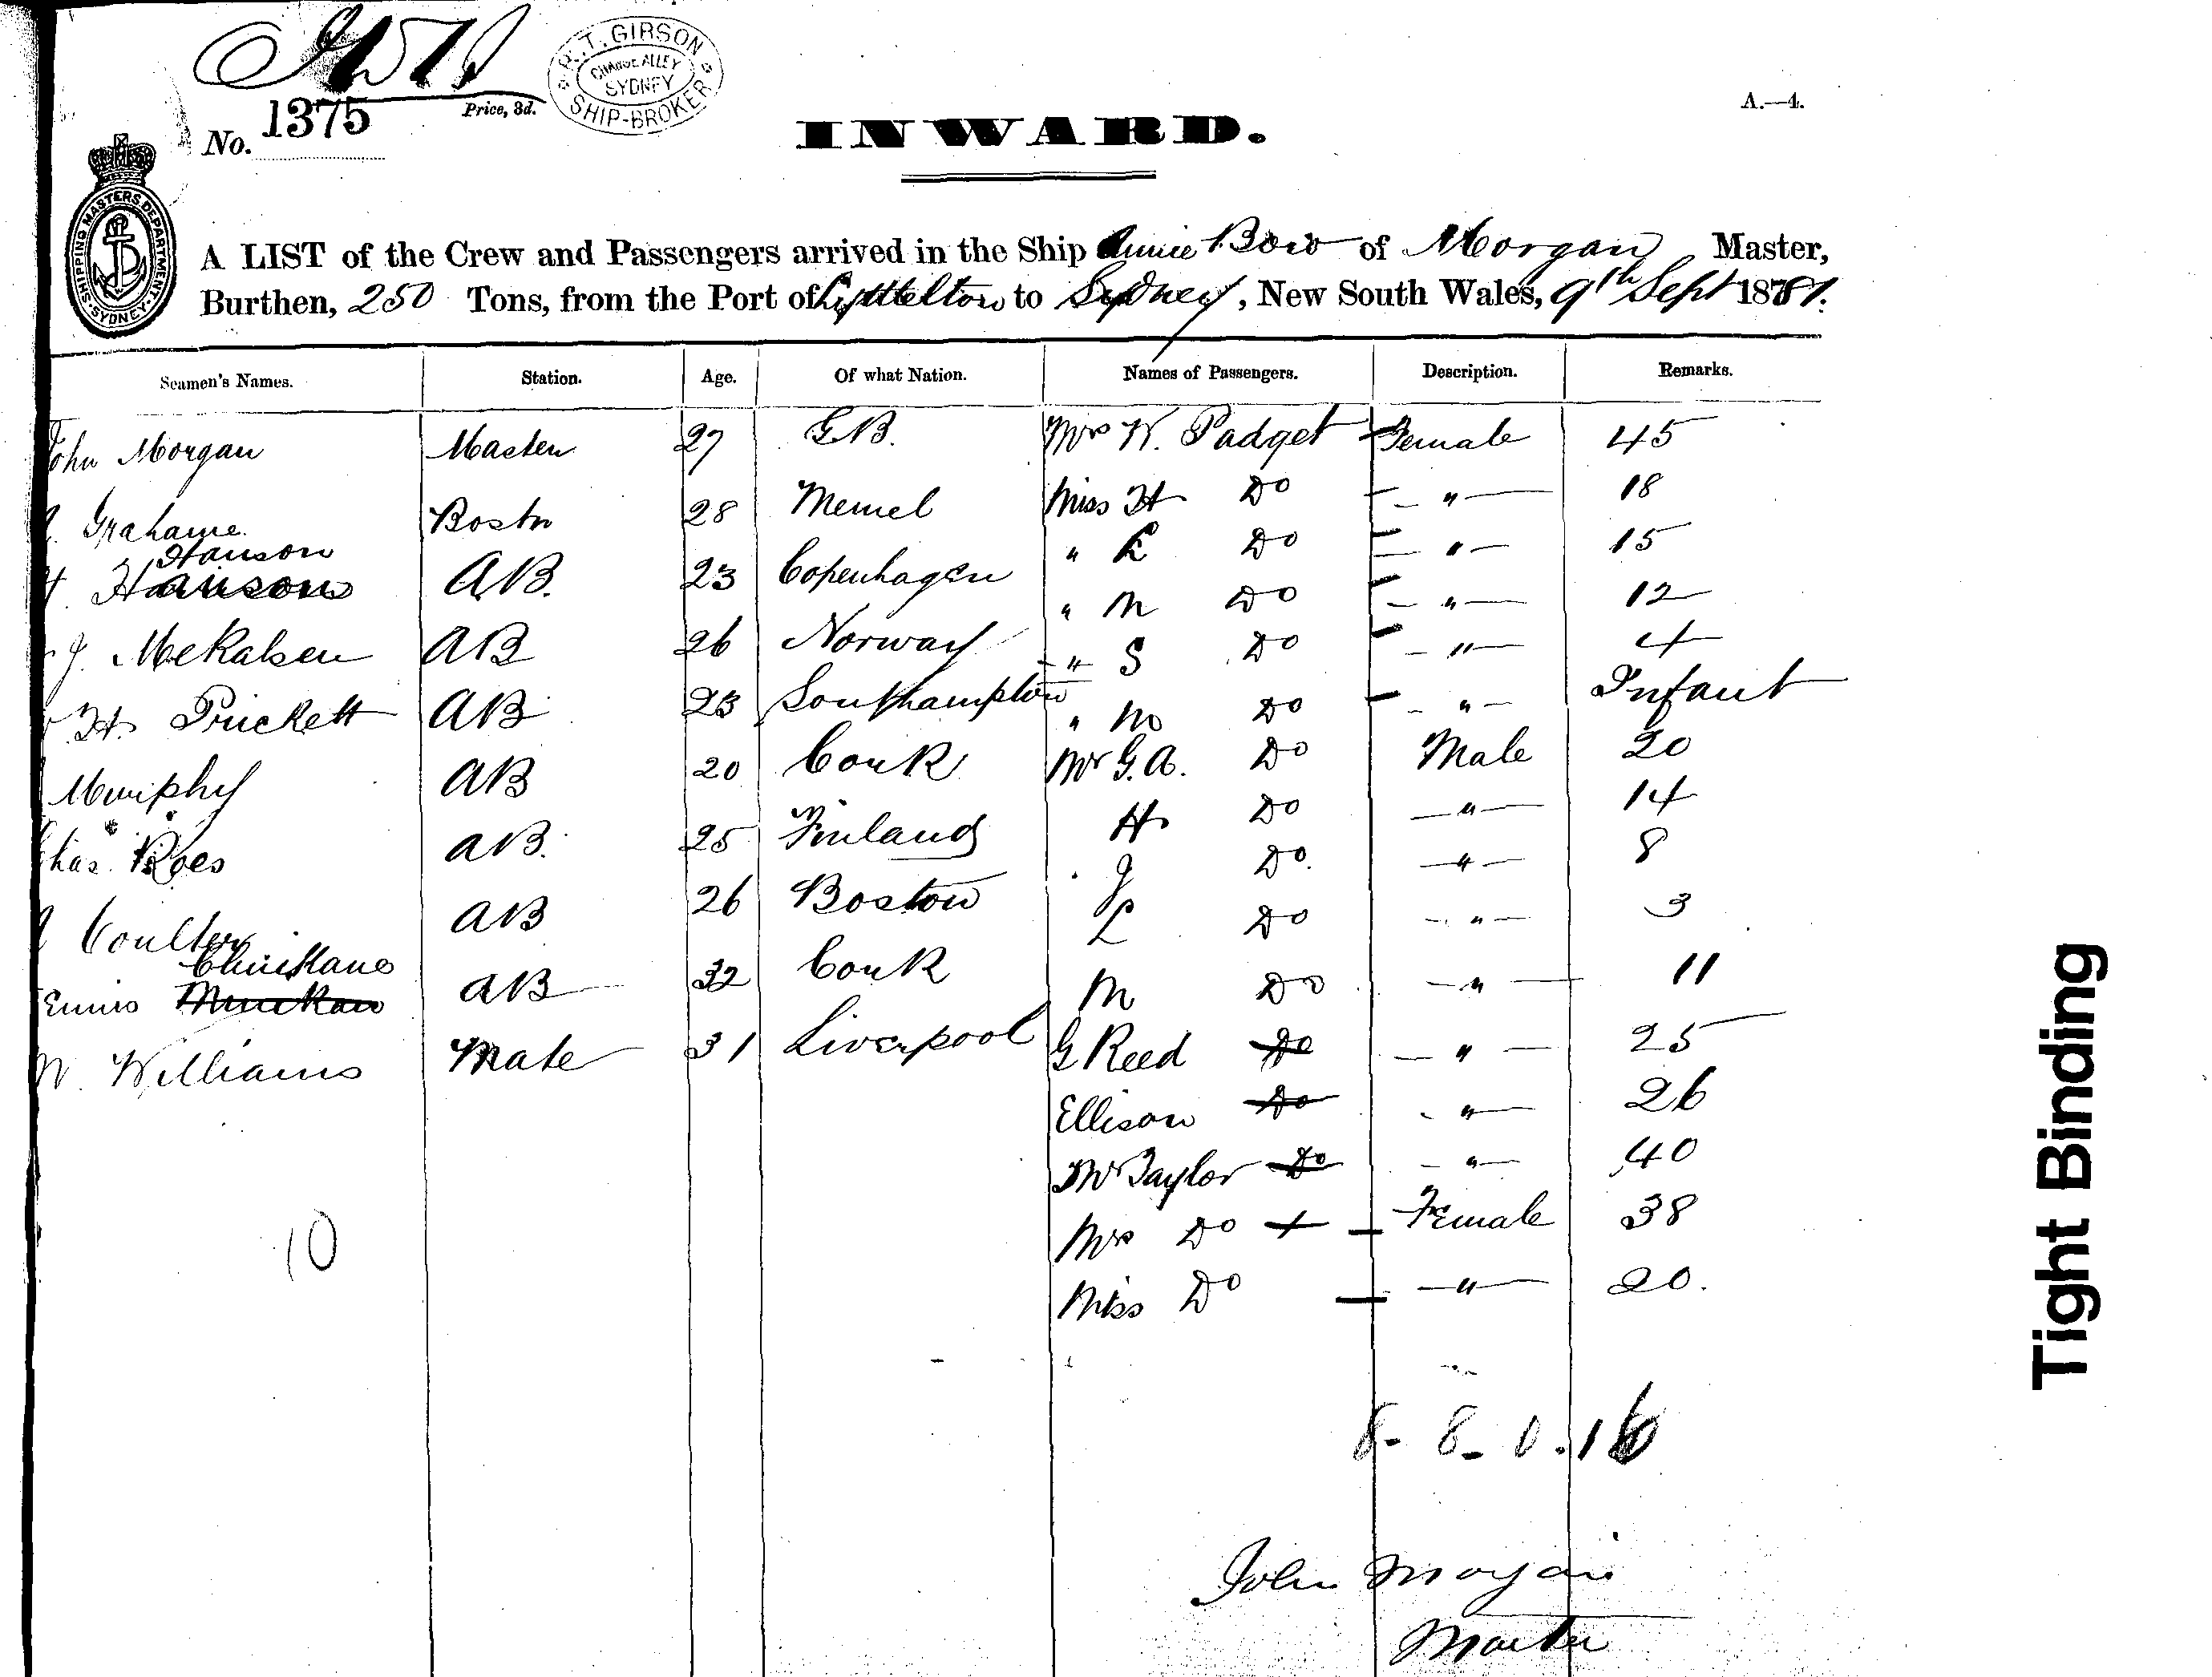 R. T. GIBSON
CHANGE ALLEY
SYDNEY
SHIP-BROKER
No. 1375
Price, 3d.
A.—4.
INWARD.
SHIPPING MASTERS DEPARTMENT
SYDNEY
A LIST of the Crew and Passengers arrived in the Ship Annie Bow of Morgan Master,
Burthen, 250 Tons, from the Port of Lyttelton to Sydney, New South Wales, 9th Sept 1881.
Seamen's Names. Station. Age. Of what Nation. Names of Passengers. Description. Remarks.
John Morgan Master 27 G.B. Mrs W. Padget Female 45
Grahame Bostn 28 Memel Miss H Do " 18
Hanson
H. AB. 23 Copenhagen " E Do " 15
J. Mekalsen AB 26 Norway " M Do " 12
" S Do " 4
H. Prickett AB 23 Southampton " M Do " Infant
Murphy AB 20 Cork Mr G.A. Do Male 20
Chas. Roes AB. 25 Finland H Do " 14
J Do. " 8
Coulter AB 26 Boston L Do " 3
AB 32 Cork M Do " 11
W. Williams Mate 31 Liverpool G Reed Do " 25
Ellison Do " 26
Mr Taylor Do " 40
Mrs Do Female 38
Miss Do " 20.
10
8 - 8 - 0 . 16
John Morgan
Master
Tight Binding